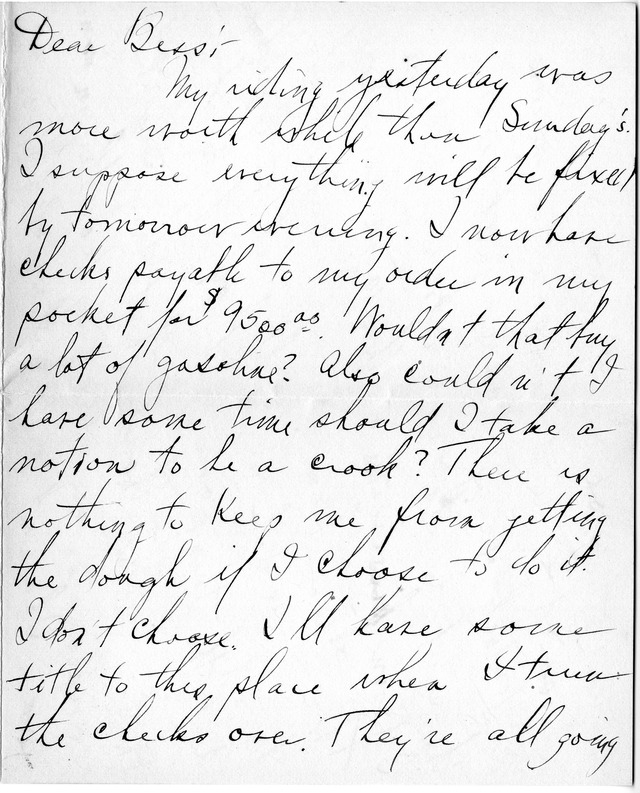 Dear Bess:-
My riding yesterday was
more worth while than Sunday's.
I suppose everything will be fixed
by tomorrow evening. I now have
checks payable to my order in my
pocket for $9500.00. Wouldn't that buy
a lot of gasoline? Also couldn't I
have some time should I take a
notion to be a crook? There is
nothing to keep me from getting
the dough if I choose to do it.
I don't choose. I'll have some
title to this place when I turn
the checks over. They're all going